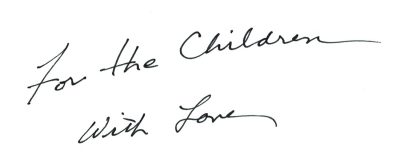 For the Children
With Love